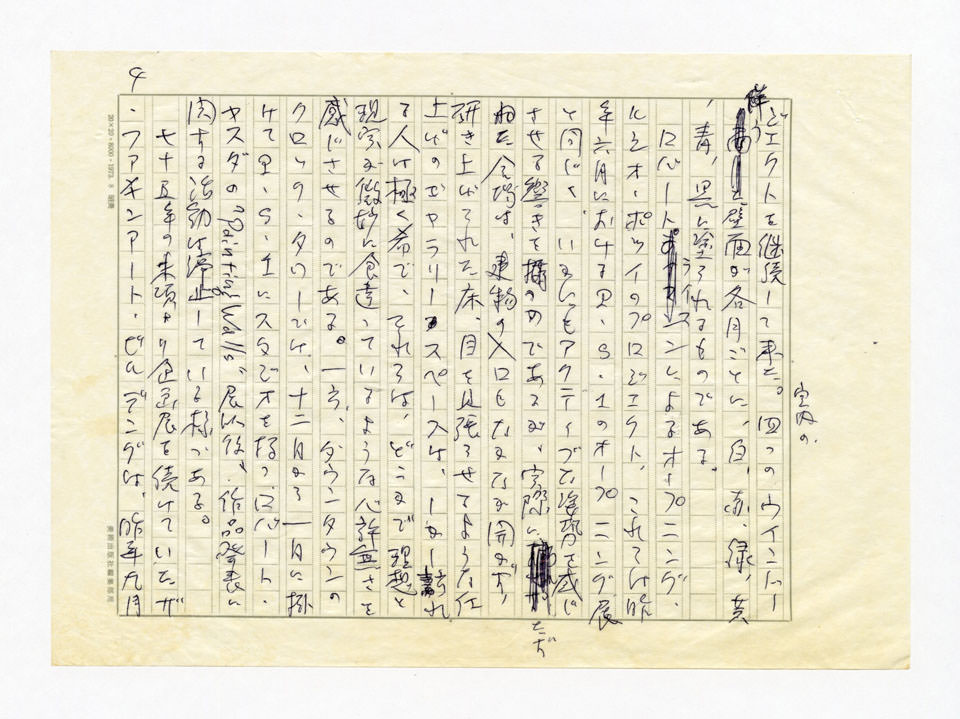 4
ジェクトを継続して来た。四つのウインドー
室内の
様う
壁面が各月ごとに、白、赤、緑、黄
、青、黒に塗られるものである。
ロバート・ライマンによるオープニング・
ルシオ・ポッツイのプロジェクト、これらは昨
年六月におけるP・S・1のオープニング展
と同じく、いかにもアクティブな姿勢を感じ
させる響きを持つのであるが、実際に
ただ
ねた会場は、建物の入口もなかなか開かず、
研き上げられた床、目を見張らせるような仕
上げのギャラリースペースは、しかし訪れ
る人は極く希で、それらは、どこまで理想と
現実が微妙に食違っているような心許無さを
感じさせるのである。一方、ダウンタウンの
クロックタワーでは、十二月から一月に掛
けてP・S・1にスタジオを持つ、ロバート・
ヤスダの"Painting Walls"展以後、作品発表に
関する活動は停止している様である。
七十五年の末頃より企画展を続けていたザ
・ファインアート・ビルディングは、昨年九月
20×20・6000・1973.